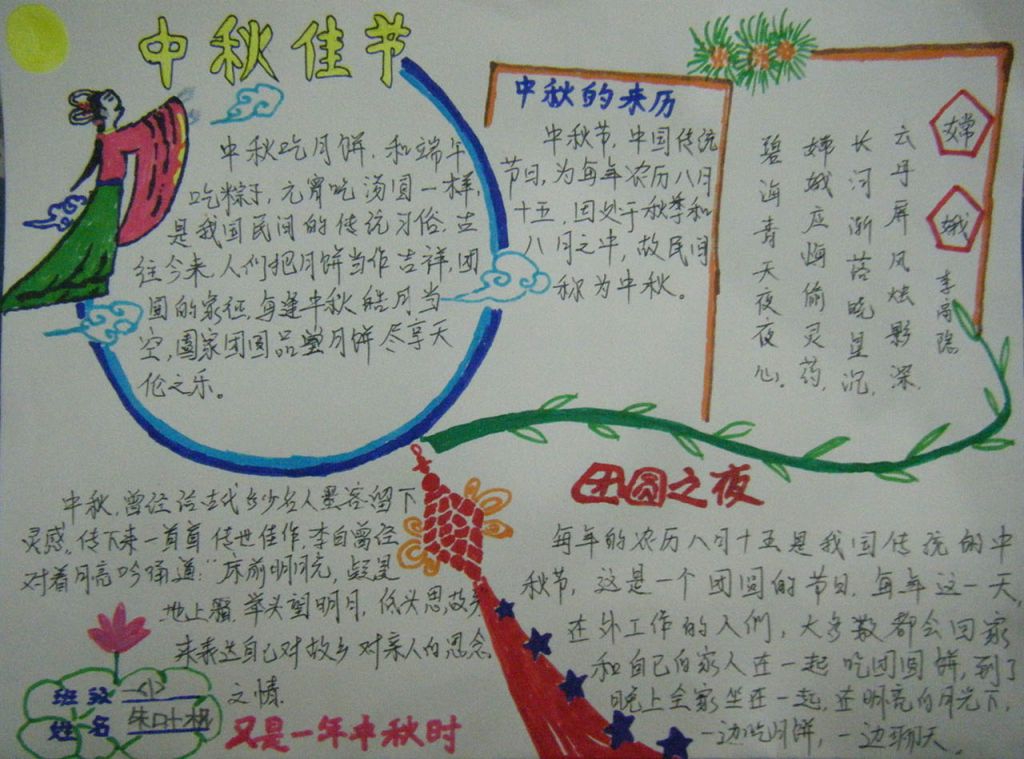 中秋佳节
中秋吃月饼，和端午
吃粽子，元宵吃汤圆一样，
是我国民间的传统习俗。古
往今来，人们把月饼当作吉祥，团
圆的象征，每逢中秋皓月当
空，阖家团圆品尝月饼尽享天
伦之乐。
中秋的来历
中秋节，中国传统
节日，为每年农历八月
十五，因处于秋季和
八月之中，故民间
称为中秋。
嫦娥
李商隐
云母屏风烛影深，
长河渐落晓星沉，
嫦娥应悔偷灵药，
碧海青天夜夜心。
中秋，曾经给古代多少名人墨客留下
灵感，传下来一首首传世佳作，李白曾经
对着月亮吟诵道："床前明月光，疑是
地上霜，举头望明月，低头思故乡
来表达自己对故乡对亲人的思念
之情。
班级
姓名
又是一年中秋时
团圆之夜
每年的农历八月十五是我国传统的中
秋节，这是一个团圆的节日，每年这一天，
在外工作的人们，大多数都会回家
和自己的家人在一起吃团圆饼，到了
晚上全家坐在一起，在明亮的月光下，
一边吃月饼，一边聊天。